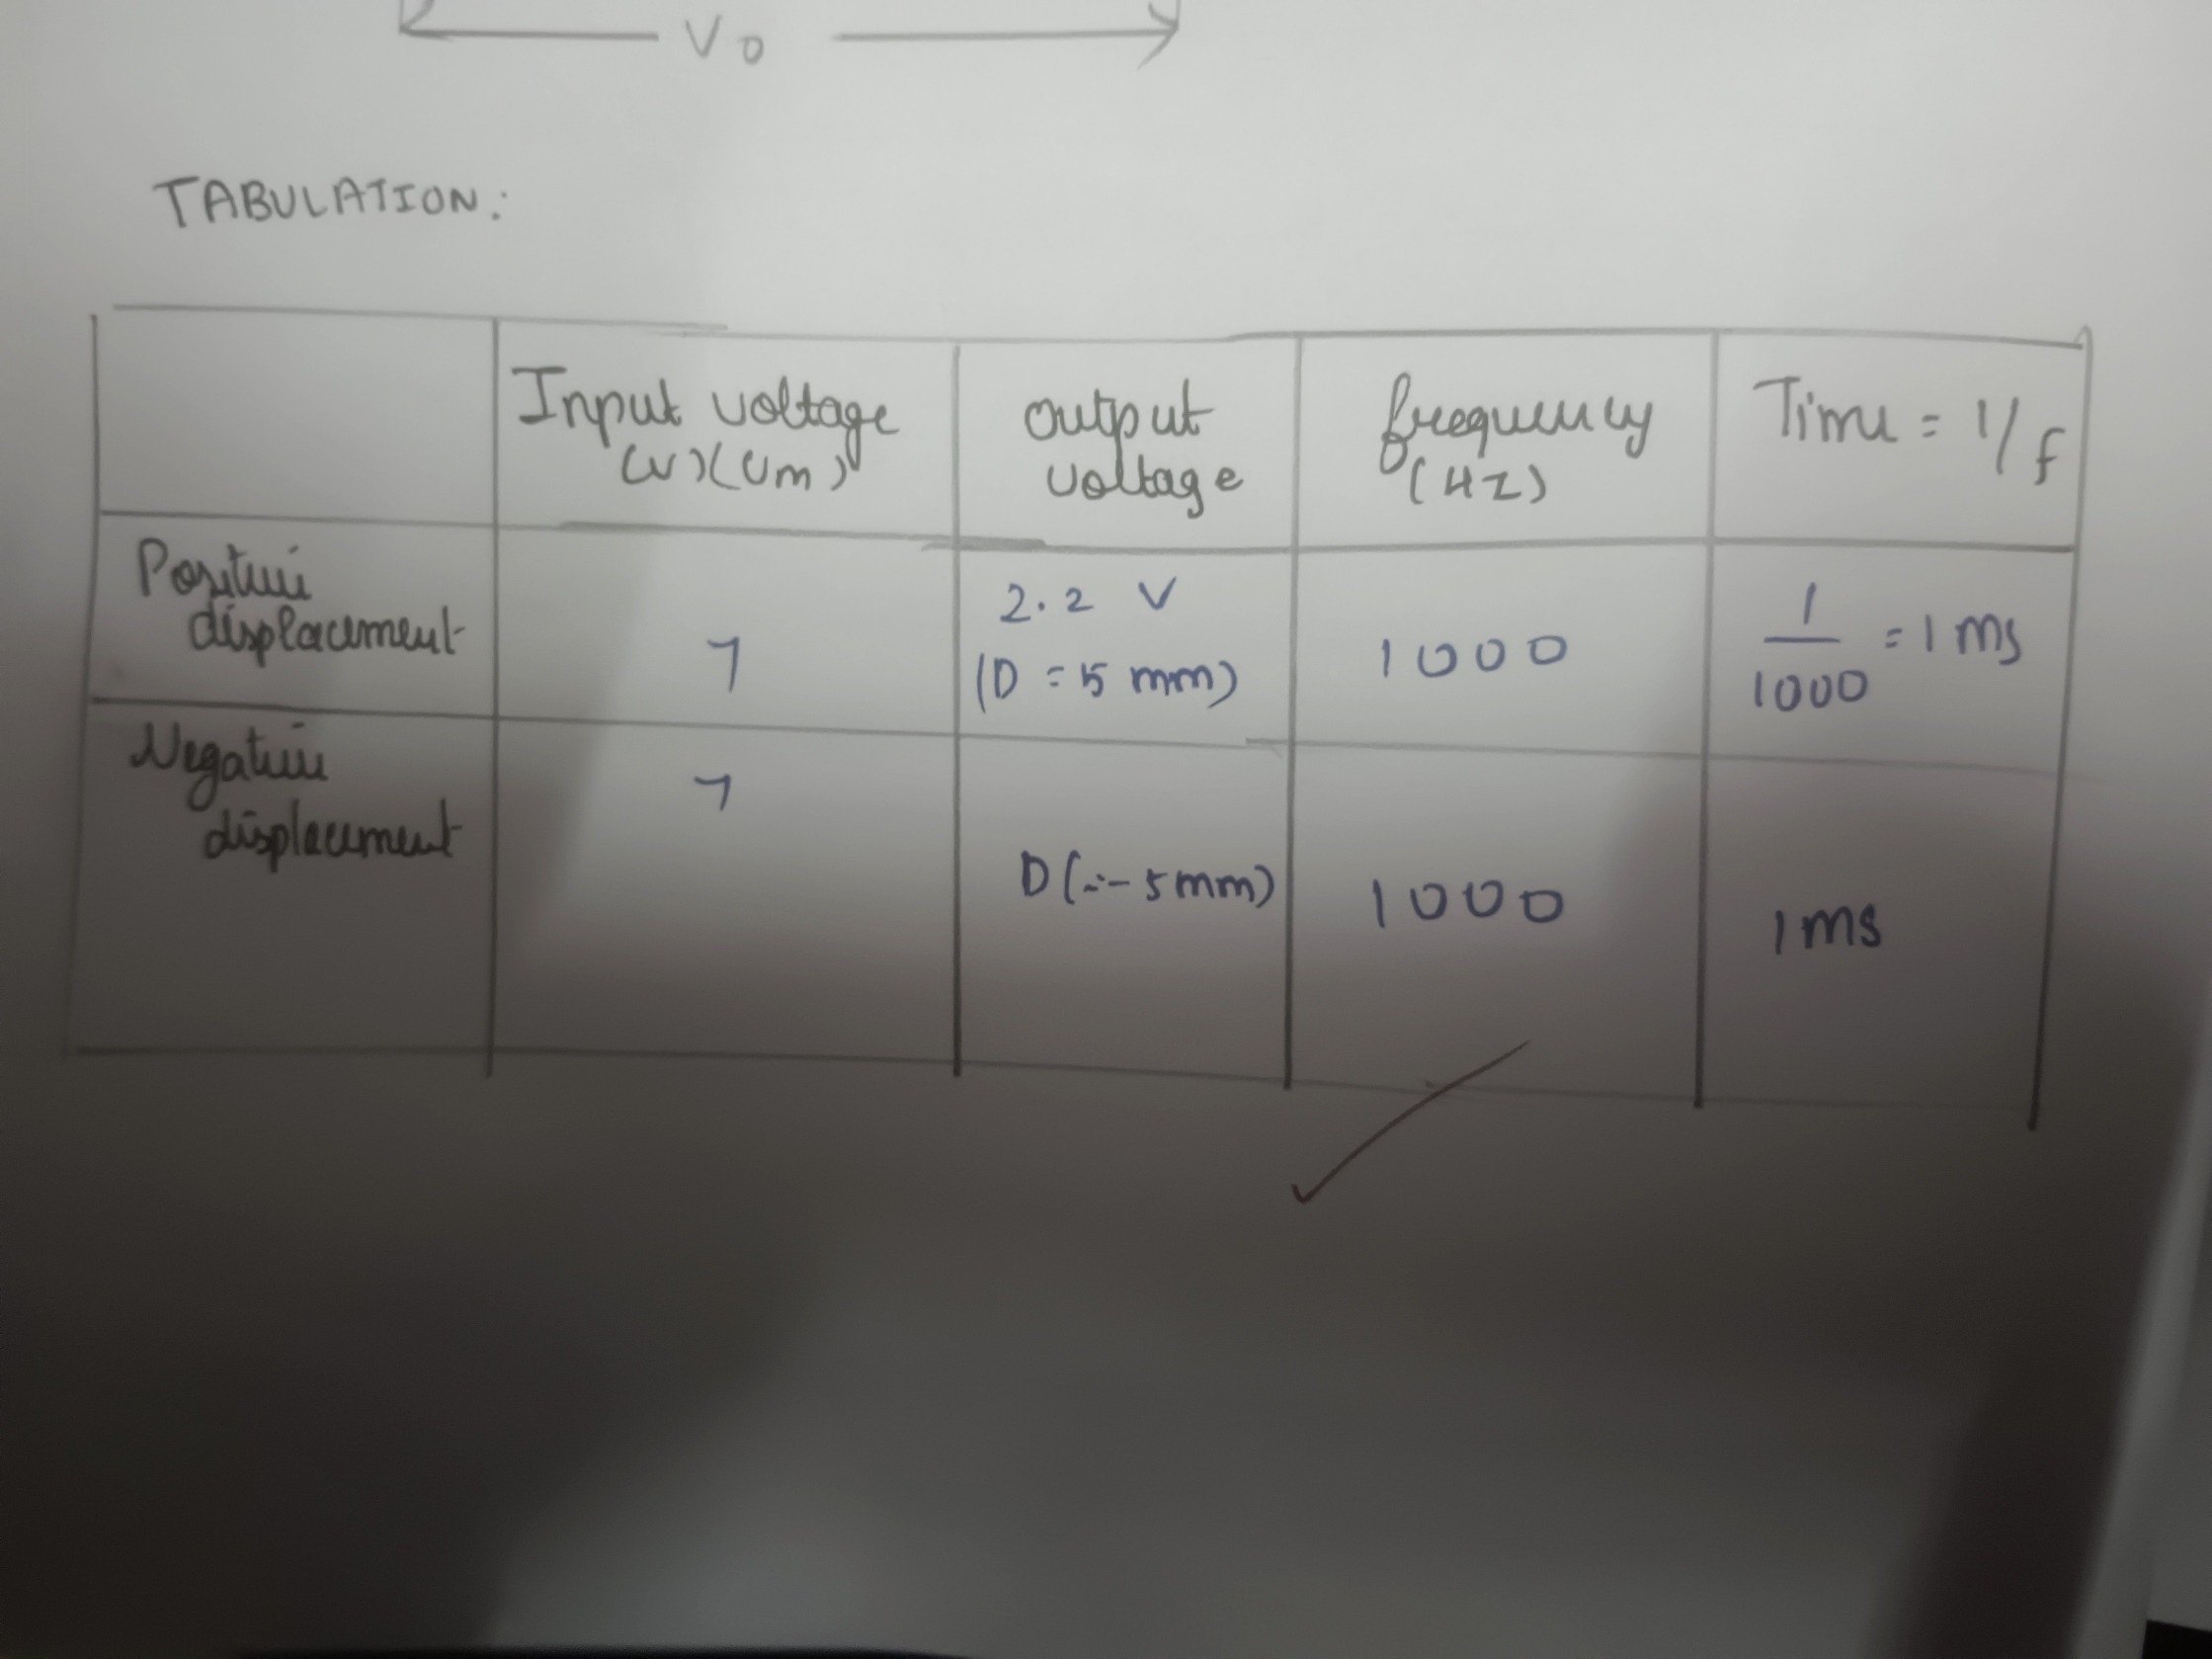 Vo
TABULATION:
Input voltage
(V)(Vm)
output
voltage
frequency
(HZ)
Time = 1/f
Positive
displacement
7
2.2 V
(D = 5 mm)
1000
1
1000
= 1 ms
Negative
displacement
7
D(=-5mm)
1000
1ms